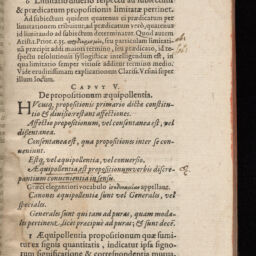 & prædicatum propositionis limitatæ pertinet.
Ad subiectum quidem quatenus ei prædicatum per
limitationem tribuitur, ad prædicatum verò, quatenus
id limitando ad subiectum determinatur. Quod autem
seu particulam limitati-
uā præcipit addi maiori termino, seu prædicato, id re-
spectu resolutionis syllogisticæ intelligendum est, in
qua limitatio semper vitiosè additur termino medio.
Vide eruditissimam explicationem Clariss. Viri super
illum locum.
CAPVT V.
De propositionum æquipollentia.
Hucusq; propositionis primario dictæ constitu-
tio & diuisio: restant affectiones.
Affectio propositionum, vel consentanea est, vel
dissentanea.
Consentanea est, qua propositiones inter se con-
ueniunt.
Estq; vel æquipollentia, vel conuersio.
Æquipollentia est propositionum verbis discre-
pantium conuenientia in sensu.
Græci elegantiori vocabulo ἰσοδυναμίαν appellant.
Canones æquipollentia sunt vel Generales, vel
speciales.
Generales sunt qui tam ad puras, quam moda-
les pertinent.
1 Æquipollentia propositionum quæ sumi-
tur ex signis quantitatis, indicatur ipsa signo-
rum significatione & correspondentia mutua.